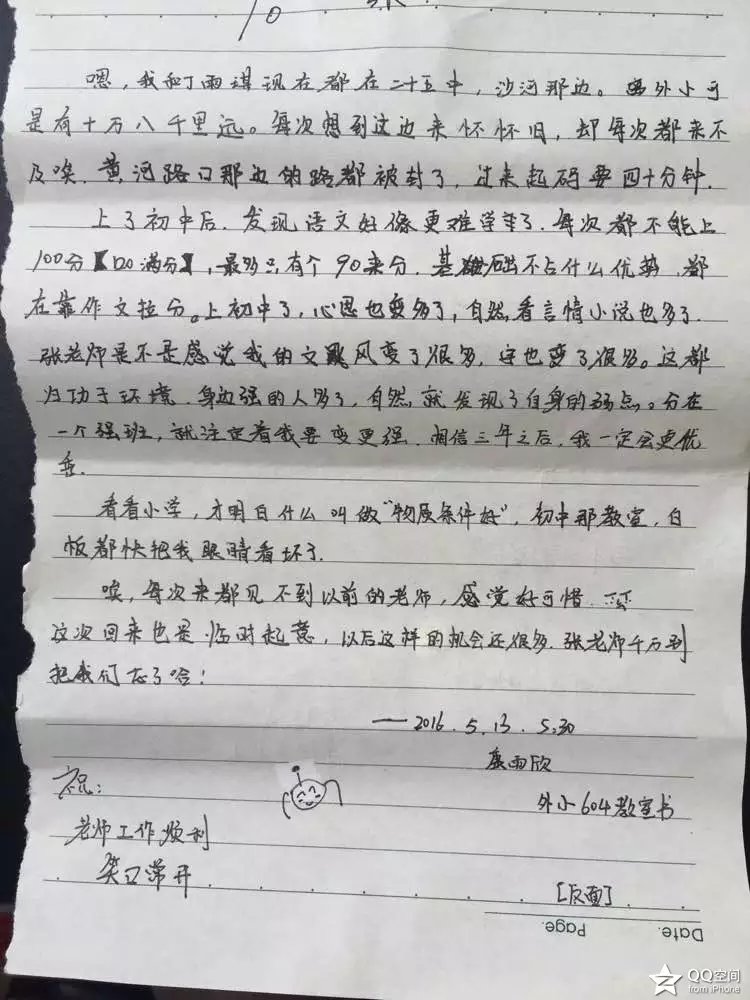 嗯，我和丁雨谋现在都在二十五中，沙河那边。离外小可
是有十万八千里远。每次想到这边来怀怀旧，却每次都来不
及唉，黄河路口那边的路都被封了，过来起码要四十分钟.
上了初中后，发现语文好像更难学了，每次都不能上
100分【120满分】，最多只有个90来分，基础不占什么优势，都
在靠作文拉分。上初中了，心思也变多了，自然看言情小说也多了.
张老师是不是感觉我的文风变了很多，字也变了很多。这都
归功于环境，身边强的人多了，自然就发现了自身的弱点。分在
一个强班，就注定着我要变更强，相信三年之后，我一定会更优
秀.
看看小学，才明白什么叫做“物质条件好”，初中那教室，白
板都快把我眼睛看坏了.
唉，每次来都见不到以前的老师，感觉好可惜.
这次回来也是临时起意，以后这样的机会还很多.张老师千万别
把我们忘了哈！
——2016.5.13.5:30
康雨欣
外小604教室书
祝：
老师工作顺利
笑口常开
[反面]
Date.
Page.
QQ空间
from iPhone